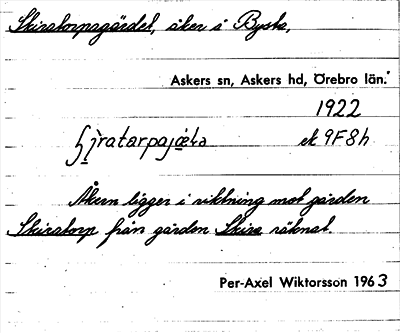 Skiratorpsgärdet, åker i Bysta,
Askers sn, Askers hd, Örebro län.
1922
ʃi̱ratarpajæ̱ta ek 9F8h
Åkern ligger i riktning mot gården
Skiratorp från gården Skira räknat.
Per-Axel Wiktorsson 1963